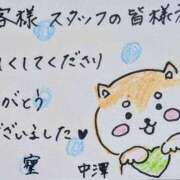 客様 スタッフの皆様方
くしてくださり
がとう
ございました♥
中澤